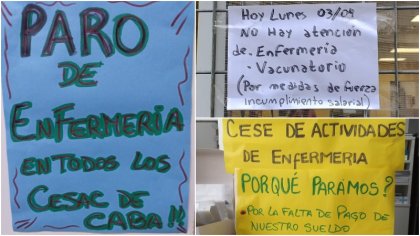 PARO
DE
ENFERMERIA
EN TODOS LOS
CESAC DE
CABA!!
Hoy Lunes 03/09
NO Hay atención
de. Enfermeria
- Vacunatorio
(Por medidas de fuerza
incumplimiento salarial)
CESE DE ACTIVIDADES
DE ENFERMERIA
PORQUÉ PARAMOS?
• POR LA FALTA DE PAGO DE
NUESTRO SUELDO